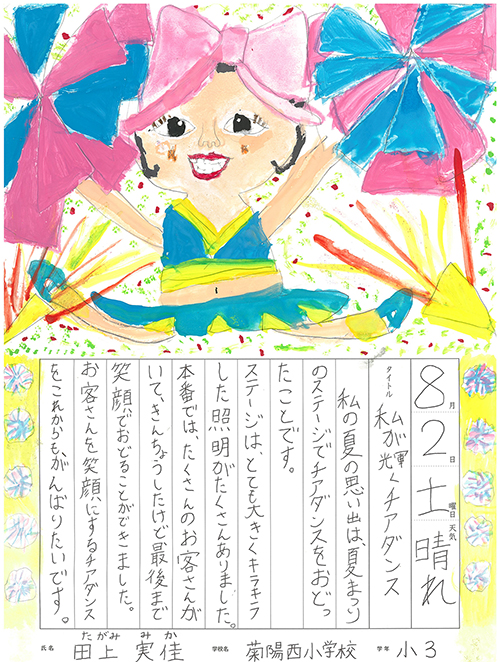 8月2日土曜日天気晴れ
タイトル 私が輝くチアダンス
私の夏の思い出は、夏まつり
のステージでチアダンスをおどっ
たことです。
ステージは、とても大きくキラキラ
した照明がたくさんありました。
本番では、たくさんのお客さんが
いて、きんちょうしたけど最後まで
笑顔でおどることができました。
お客さんを笑顔にするチアダンス
をこれからも、がんばりたいです。
氏名 田上 実佳 たがみ みか 学校名 菊陽西小学校 学年 小3